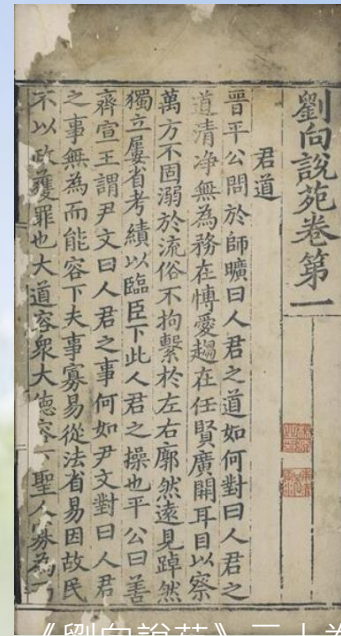 劉向說苑卷第一
君道
晉平公問於師曠曰人君之道如何對曰人君之
道清净無為務在愽愛趨在任賢廣開耳目以察
萬方不固溺於流俗不拘繫於左右廓然遠見踔然
獨立屢省考績以臨臣下此人君之操也平公曰善
齊宣王謂尹文曰人君之事何如尹文對曰人君
之事無為而能容下夫事寡易從法省易因故民
不以政獲罪也大道容衆大德容下聖人寡為
《劉向說苑》